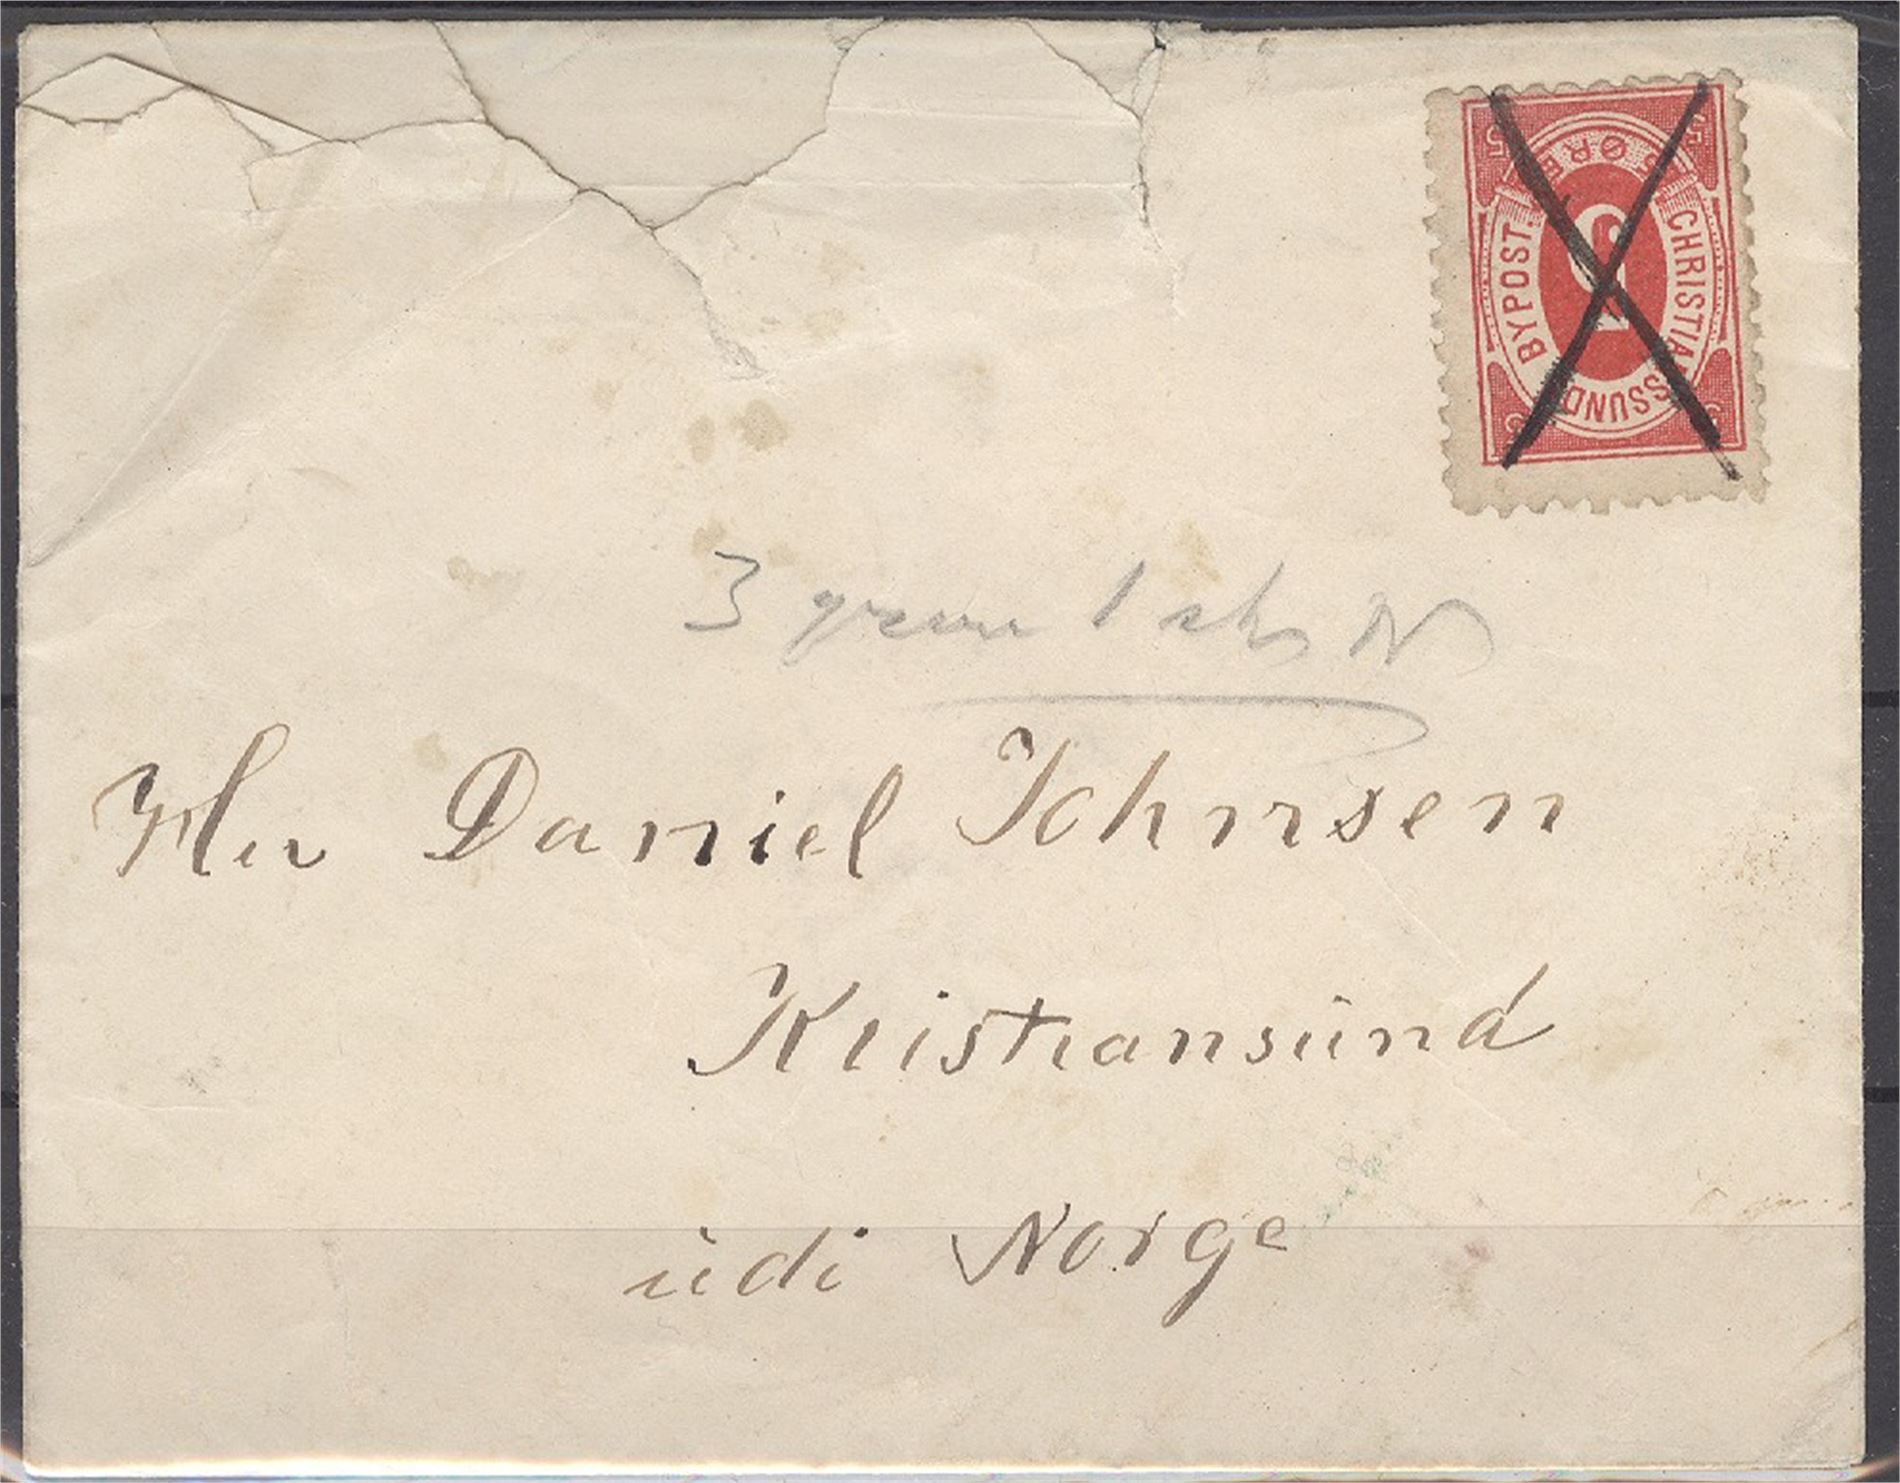 5 5
5 ØRE
BYPOST. CHRISTIANSSUND
5
5 5
3
Hr Daniel Johnsen
Kristiansünd
üdi Norge